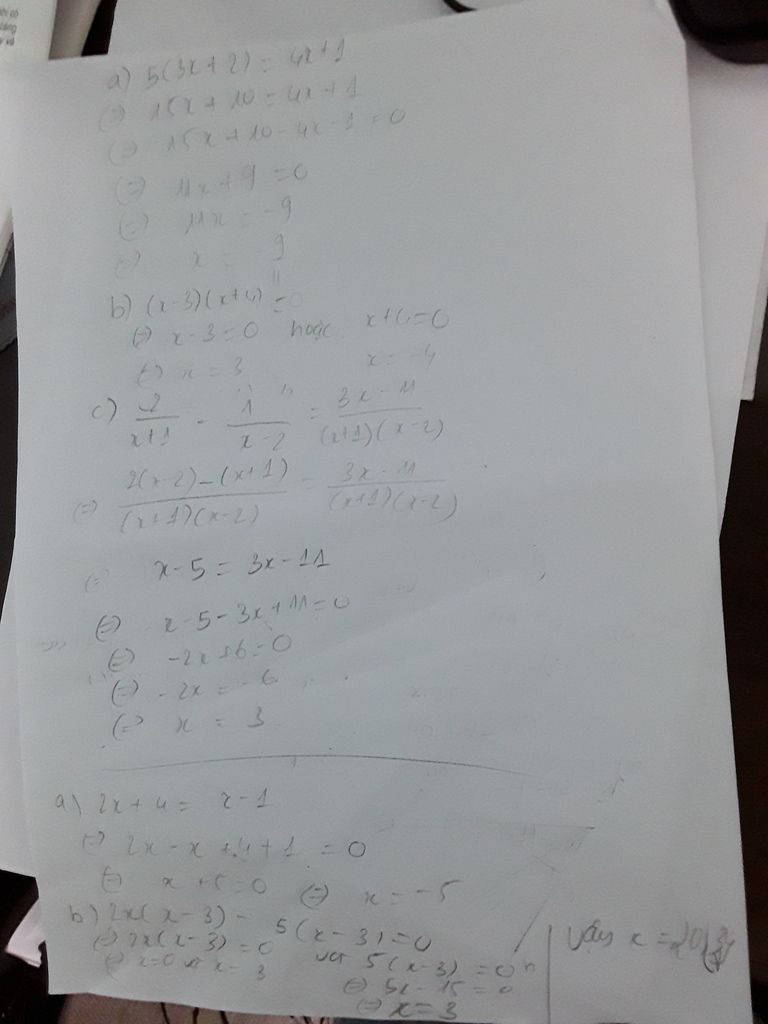 a) 5(3x+2) = 4x+1
(=) 15x+10 = 4x+1
(=) 15x+10-4x-1 = 0
(=) 11x+9 = 0
(=) 11x = -9
(=) x = -9
11
b) (x-3)(x+4) = 0
(=) x-3=0 hoặc x+4=0
(=) x = 3 x = -4
c) 2/(x+1) - 1/(x-2) = (3x-11)/((x+1)(x-2))
(=) (2(x-2)-(x+1))/((x+1)(x-2)) = (3x-11)/((x+1)(x-2))
(= x-5 = 3x-11
(=) x-5-3x+11=0
(=) -2x+6=0
(=) -2x = -6
(=) x = 3
a) 2x+4 = x-1
(=) 2x-x+4+1 = 0
(=) x+5=0 (=) x = -5
b) 2x(x-3) - 5(x-3)=0
(=) 2x(x-3)=0 5(x-3)=0
(=) x=0 x=3 (=) 5x-15=0
(=) x=3
Vậy x =